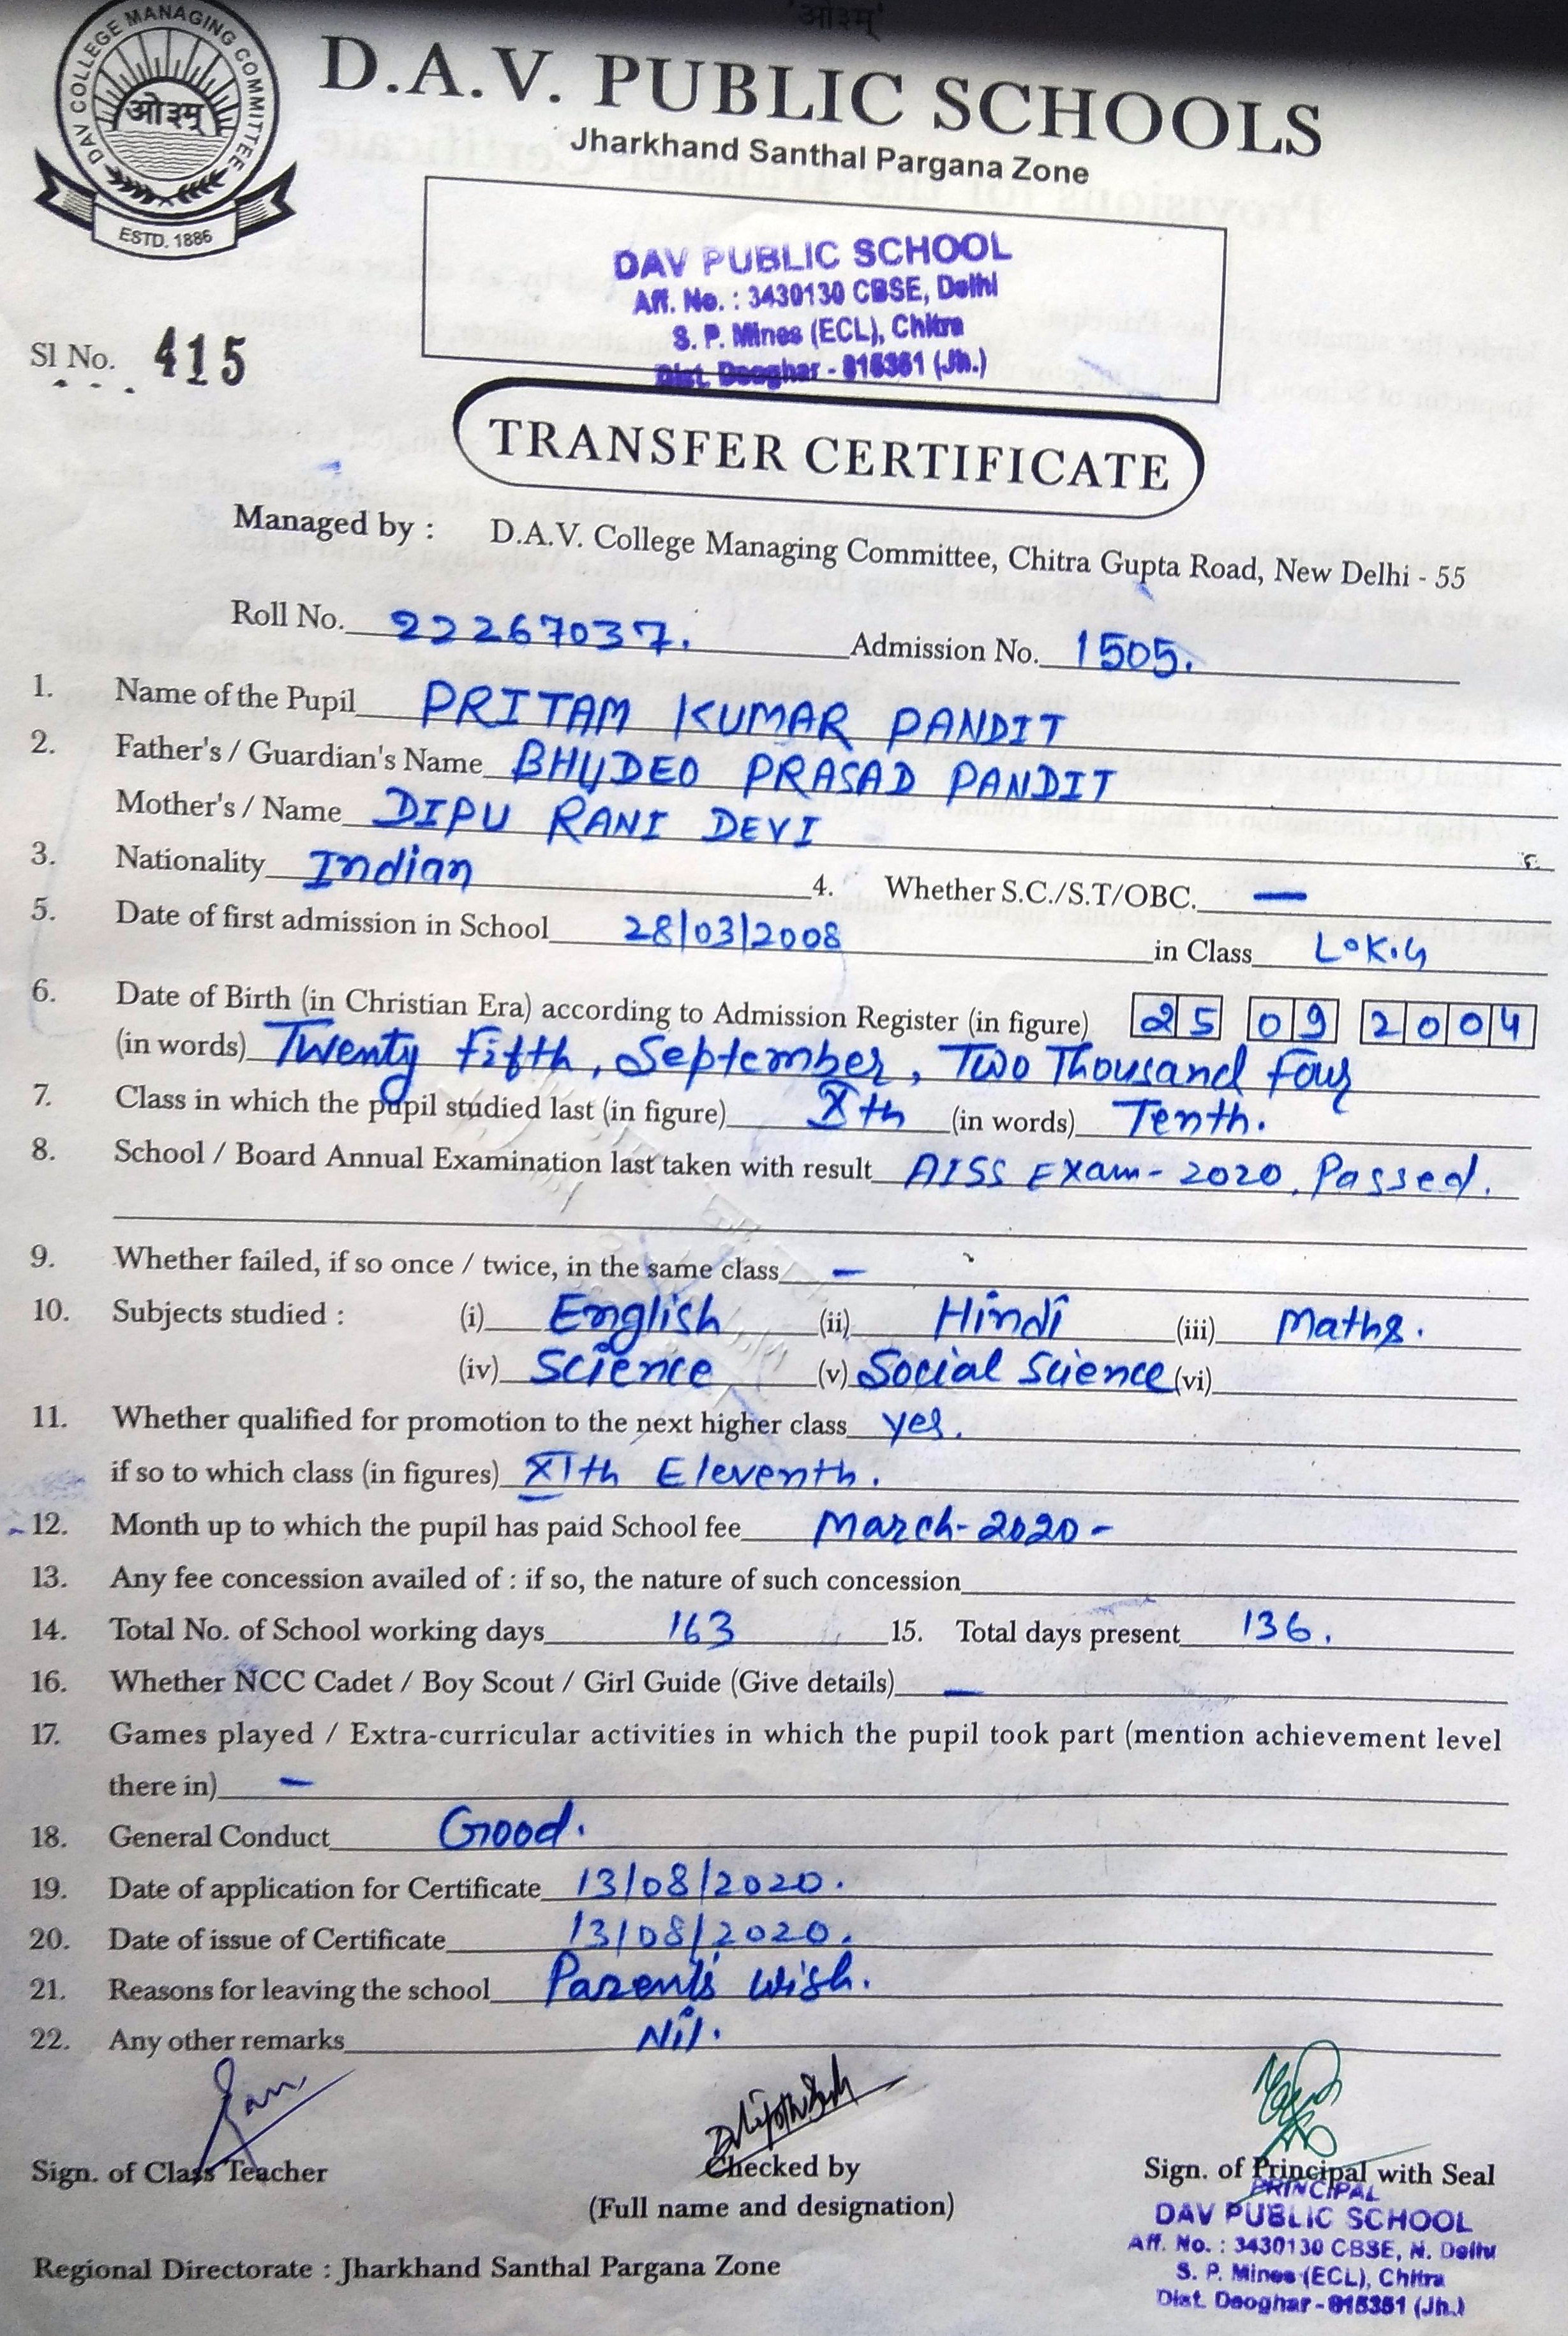 'ओ३म्'
DAV COLLEGE MANAGING COMMITTEE
ओ३म्
ESTD. 1886
D.A.V. PUBLIC SCHOOLS
Jharkhand Santhal Pargana Zone
DAV PUBLIC SCHOOL
Aff. No. : 3430130 CBSE, Delhi
S. P. Mines (ECL), Chitra
Dist. Deoghar - 815351 (Jh.)
Sl No. 415
TRANSFER CERTIFICATE
Managed by : D.A.V. College Managing Committee, Chitra Gupta Road, New Delhi - 55
Roll No. 22267037. Admission No. 1505.
1. Name of the Pupil PRITAM KUMAR PANDIT
2. Father's / Guardian's Name BHUDEO PRASAD PANDIT
Mother's / Name DIPU RANI DEVI
3. Nationality Indian 4. Whether S.C./S.T/OBC. —
5. Date of first admission in School 28/03/2008 in Class L.K.G
6. Date of Birth (in Christian Era) according to Admission Register (in figure) 25 09 2004
(in words) Twenty Fifth, September, Two Thousand Four
7. Class in which the pupil studied last (in figure) Xth (in words) Tenth.
8. School / Board Annual Examination last taken with result AISS Exam - 2020, Passed.
9. Whether failed, if so once / twice, in the same class —
10. Subjects studied : (i) English (ii) Hindi (iii) Maths.
(iv) Science (v) Social Science (vi)
11. Whether qualified for promotion to the next higher class yes.
if so to which class (in figures) XIth Eleventh.
12. Month up to which the pupil has paid School fee March-2020-
13. Any fee concession availed of : if so, the nature of such concession
14. Total No. of School working days 163 15. Total days present 136.
16. Whether NCC Cadet / Boy Scout / Girl Guide (Give details) —
17. Games played / Extra-curricular activities in which the pupil took part (mention achievement level
there in) —
18. General Conduct Good.
19. Date of application for Certificate 13/08/2020.
20. Date of issue of Certificate 13/08/2020.
21. Reasons for leaving the school Parent's wish.
22. Any other remarks Nil.
Sign. of Class Teacher
Checked by
(Full name and designation)
Sign. of Principal with Seal
PRINCIPAL
DAV PUBLIC SCHOOL
Aff. No. : 3430130 CBSE, N. Delhi
S. P. Mines (ECL), Chitra
Dist. Deoghar - 815351 (Jh.)
Regional Directorate : Jharkhand Santhal Pargana Zone